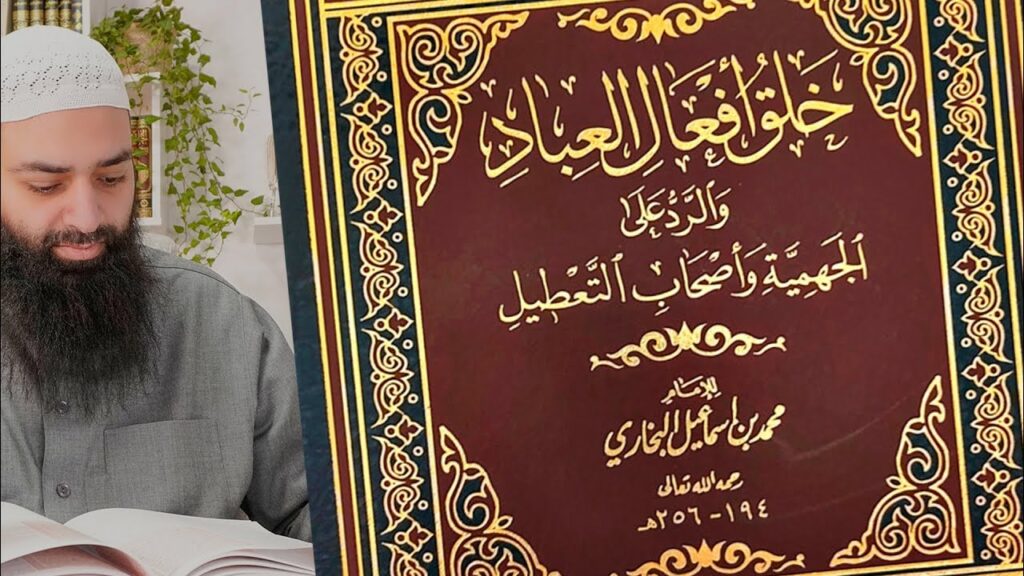 خَلْقُ أَفْعَالِ العِبَادِ
وَالرَّدُّ عَلَى
الجَهْمِيَّةِ وَأَصْحَابِ التَّعْطِيلِ
للإمام
محمد بن إسماعيل البخاري
رحمه الله تعالى
١٩٤ - ٢٥٦هـ